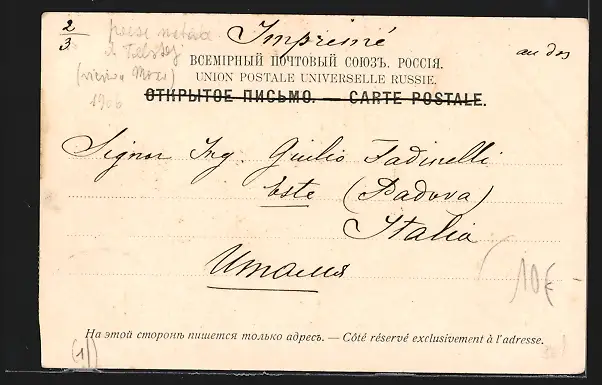 2/3
Imprimé
au dos
ВСЕМІРНЫЙ ПОЧТОВЫЙ СОЮЗЪ. РОССІЯ.
UNION POSTALE UNIVERSELLE RUSSIE.
ОТКРЫТОЕ ПИСЬМО. — CARTE POSTALE.
1906
Signor Ing. Giulio Fadinelli
Este (Padova)
Italia
Италия
10€
На этой сторонѣ пишется только адресъ. — Côté réservé exclusivement à l'adresse.
(1)